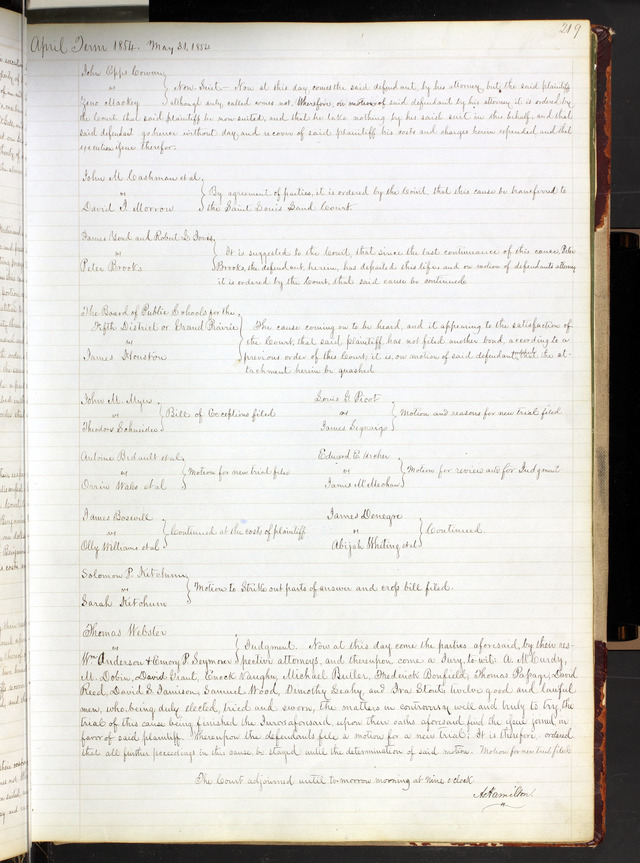 219
April Term 1854. May 31, 1854
John Opps Cowan
vs
Zeno Mackey
Non Suit — Now at this day, comes the said defendant, by his attorney, but the said plaintiff
although duly called comes not. Wherefore, on motion of said defendant by his attorney it is ordered by
the Court that said plaintiff be non suited, and that he take nothing by his said suit in this behalf, and that
said defendant go hence without day, and recover of said plaintiff his costs and charges herein expended and that
execution issue therefor.
John M. Cashman et al
vs
David I. Morrow
By agreement of parties, it is ordered by the Court, that this cause be transferred to
the Saint Louis Land Court.
James Yond and Robert G. Jones
vs
Peter Brooks
It is suggested to the Court, that since the last continuance of this cause, Peter
Brooks, the defendant herein, has departed this life; and on motion of defendants attorney
it is ordered by the Court, that said cause be continued
The Board of Public Schools for the
Fifth District or Grand Prairie
vs
James Houston
The cause coming on to be heard, and it appearing to the satisfaction of
the Court, that said plaintiff has not filed another bond, according to a
previous order of this Court, it is, on motion of said defendant, that the at-
tachment herein be quashed
John M. Myer
vs
Theodore Schneider
Bill of Exceptions filed
Louis G. Picot
vs
James
Motion and reasons for new trial filed
Antoine Bidault et al
vs
Orrin Wales et al
Motion for new trial filed
Edward C. Archer
vs
James McMechan
Motion for review and for Judgment
James Boswell
vs
Olly Williams et al
Continued at the costs of plaintiff
James Denegre
vs
Abijah Whiting et al
Continued.
Solomon P. Ketchum
vs
Sarah Ketchum
Motion to Strike out parts of answer and cross bill filed.
Thomas Webster
vs
Wm Anderson & Emory P. Seymour
Judgment. Now at this day come the parties aforesaid, by their res-
pective attorneys, and thereupon come a Jury, to wit: A. McCurdy,
M. Dobin, David Grant, Enoch Vaughn, Michael Butler, Frederick Bonfield, Thomas Papage, David
Reed, David S. Jamison, Samuel Wood, Dimothy Leahy, and Ira Stout twelve good and lawful
men, who, being duly elected, tried and sworn, the matters in controversy well and truly to try, the
trial of this cause being finished the Jurors aforesaid, upon their oaths aforesaid find the issue joined in
favor of said plaintiff. Whereupon the defendants file a motion for a new trial. It is therefore, ordered
that all further proceedings in this cause, be stayed until the determination of said motion. Motion for new trial filed
The Court adjourned until to-morrow morning at Nine o'clock
A. Hamilton